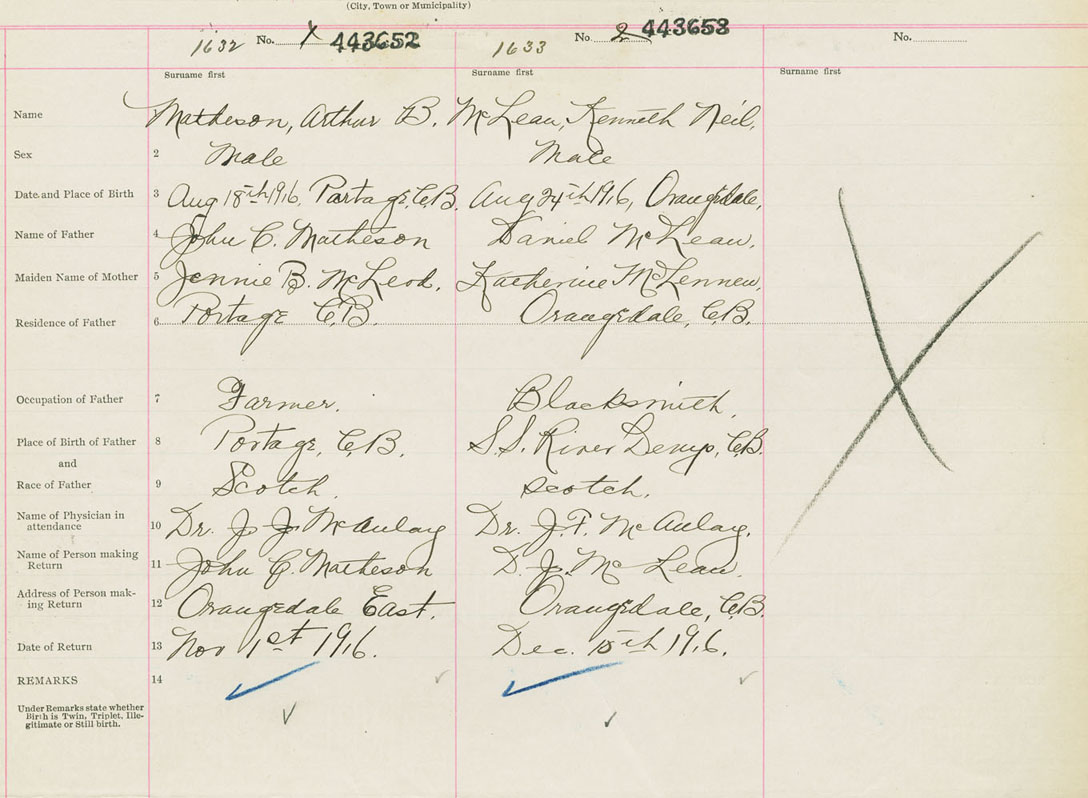 (City, Town or Municipality)
1632 No. 1 443652 1633 No. 2 443653 No.
Surname first Surname first Surname first
Name Matheson, Arthur B. McLean, Kenneth Neil.
Sex 2 Male Male
Date and Place of Birth 3 Aug 18th 1916, Portage, C.B. Aug 24th 1916, Orangedale,
Name of Father 4 John C. Matheson Daniel McLean.
Maiden Name of Mother 5 Jennie B. McLeod. Katherine McLennen,
Residence of Father 6 Portage C.B. Orangedale, C.B.
Occupation of Father 7 Farmer. Blacksmith.
Place of Birth of Father 8 Portage, C.B. S.S. River Denys, C.B.
and
Race of Father 9 Scotch. Scotch.
Name of Physician in
attendance 10 Dr. J. J. McAulay Dr. J. F. McAulay.
Name of Person making
Return 11 John C. Matheson D. J. McLean.
Address of Person mak-
ing Return 12 Orangedale East. Orangedale, C.B.
Date of Return 13 Nov 1st 1916. Dec. 15th 1916.
REMARKS 14
Under Remarks state whether
Birth is Twin, Triplet, Ille-
gitimate or Still birth.